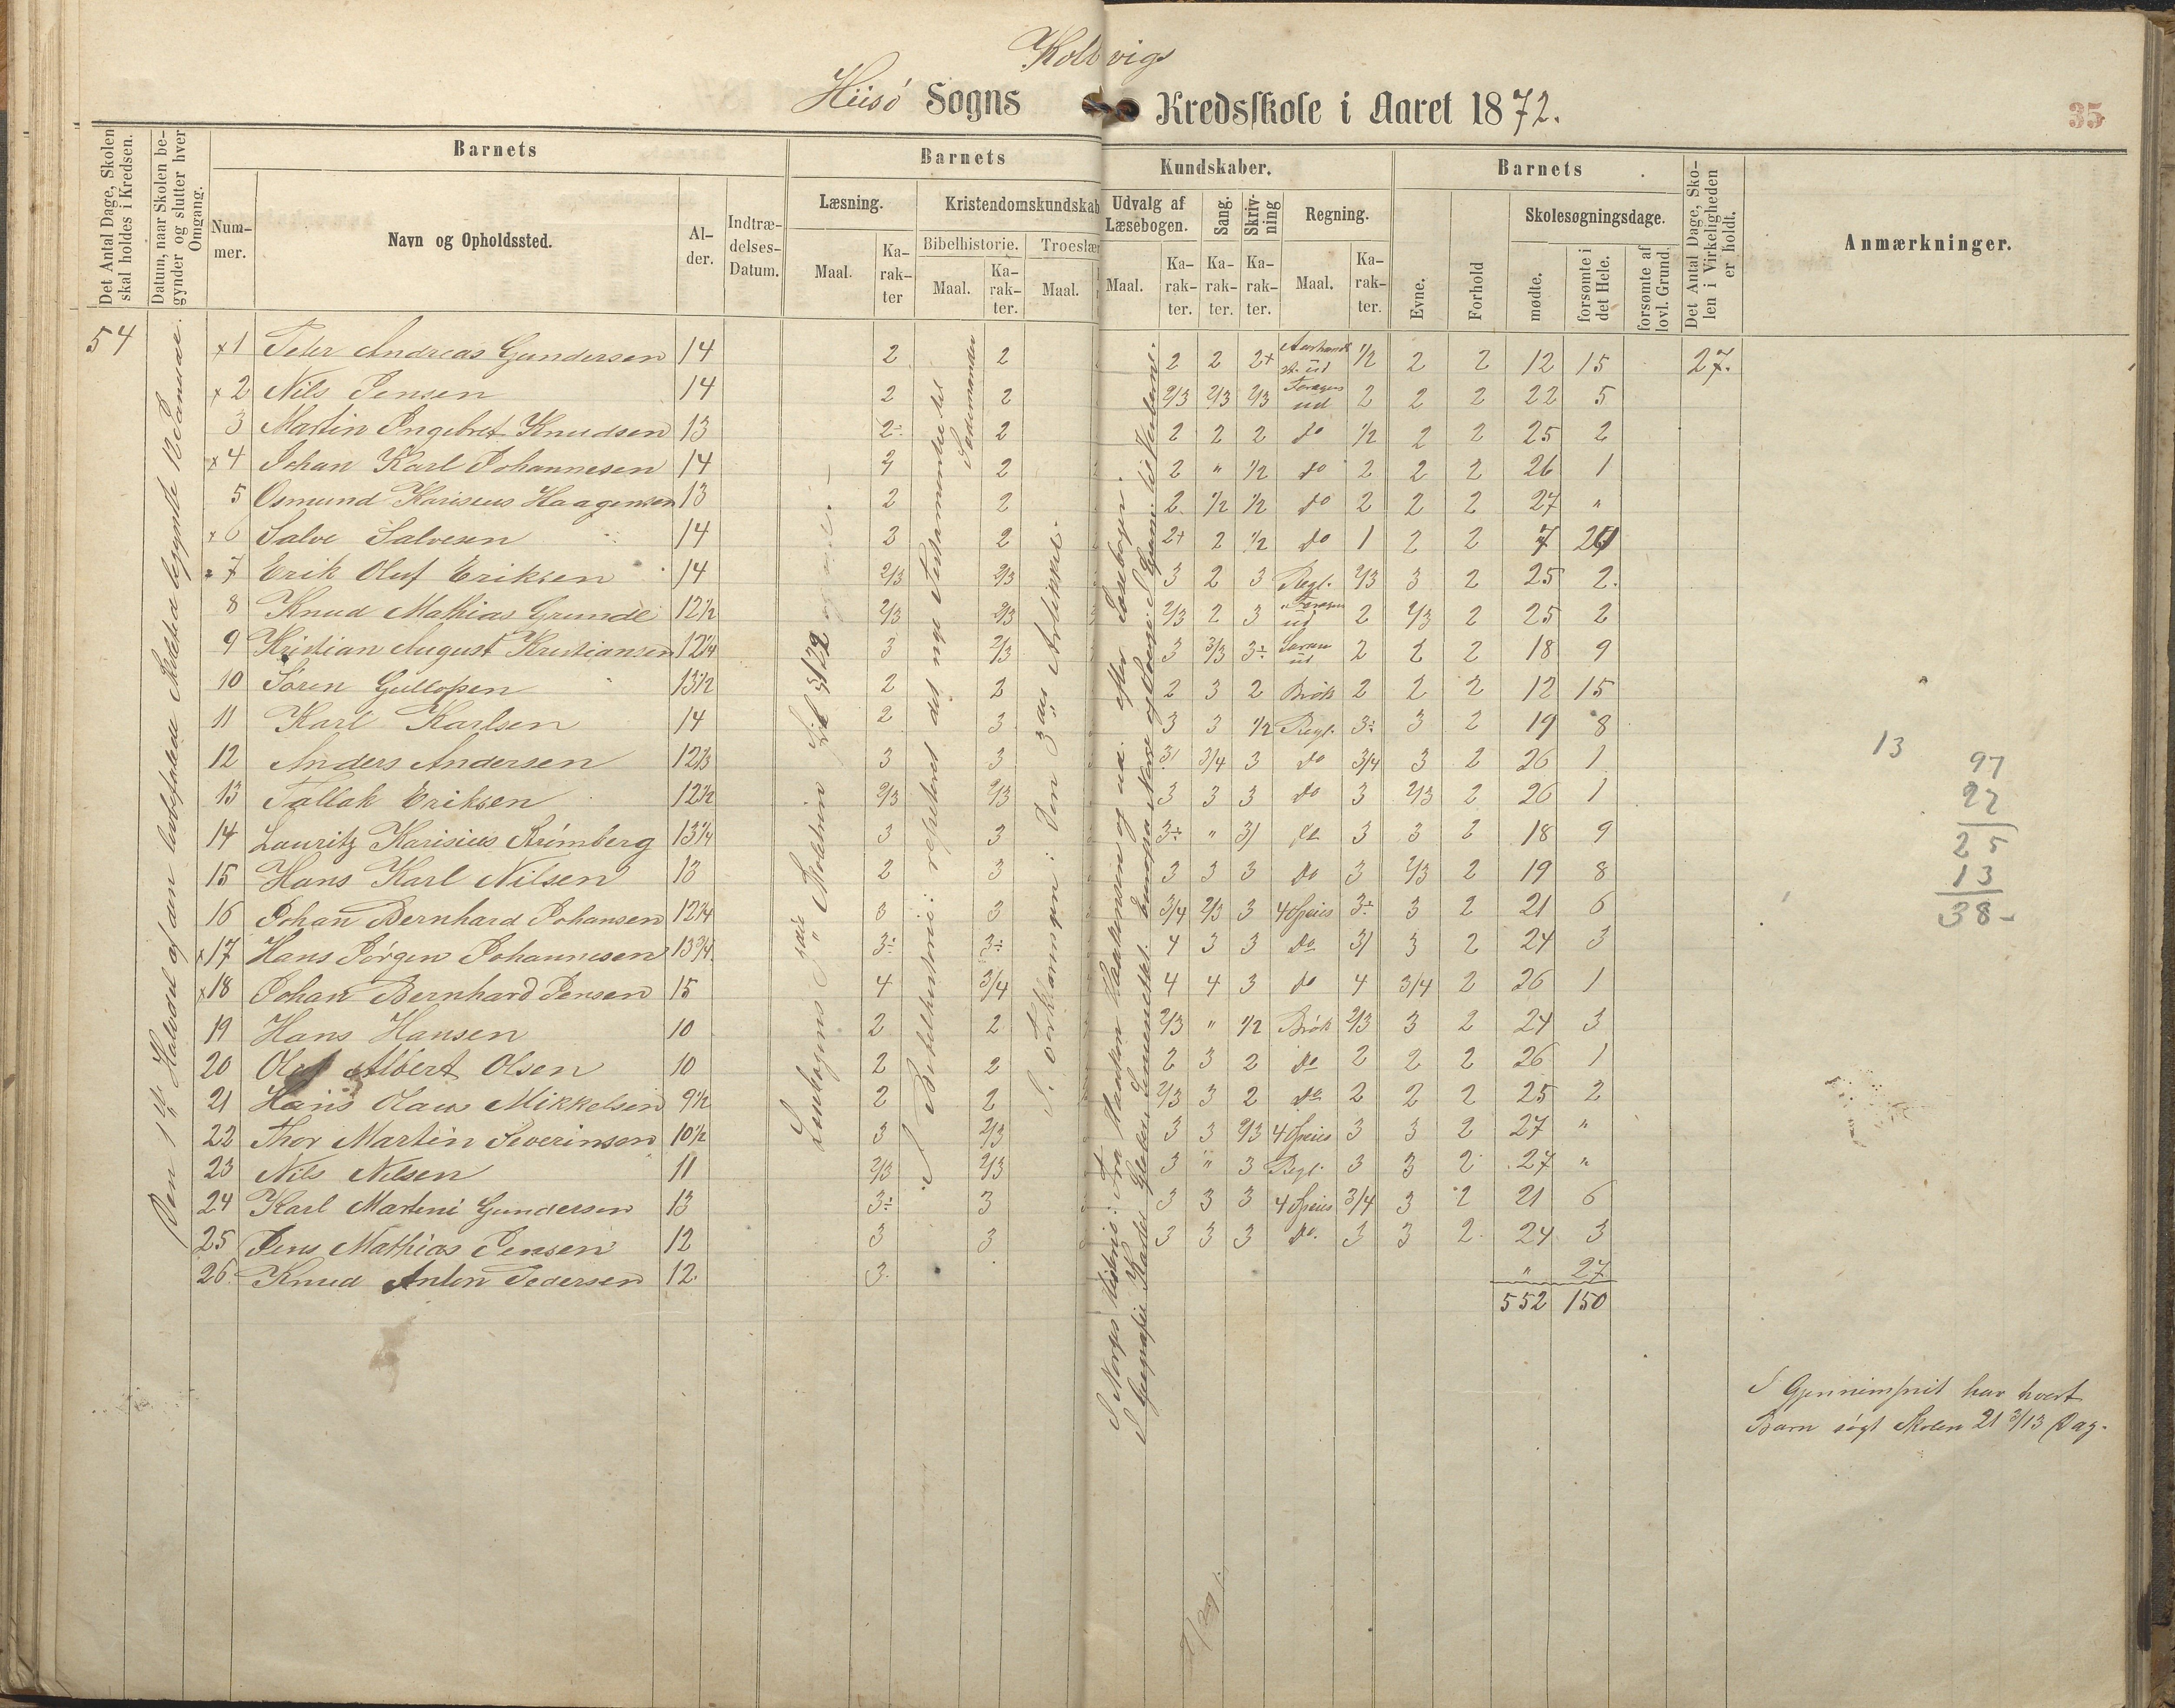 Kolbvigs
Hisö Sogns Kredsskole i Aaret 1872.
35
Det Antal Dage, Skolen skal holdes i Kredsen.
Datum, naar Skolen begynder og slutter hver Omgang.
Barnets
Nummer.
Navn og Opholdssted.
Alder.
Indtrædelses-Datum.
Barnets Kundskaber.
Læsning.
Maal.
Karakter
Kristendomskundskab
Bibelhistorie.
Maal.
Karakter.
Troeslær
Maal.
Udvalg af Læsebogen.
Maal.
Karakter.
Sang.
Karakter.
Skrivning
Karakter.
Regning.
Maal.
Karakter.
Barnets
Evne.
Forhold
Skolesøgningsdage.
mødte.
forsømte i det Hele.
forsømte af lovl. Grund.
Det Antal Dage, Skolen i Virkeligheden er holdt.
Anmærkninger.
54
Den 1ste Halvdel af den Skoletid begyndte 12 Januar.
x1 Peter Andreas Gundersen 14 2 2 2 2 2+ ud 1/2 2 2 12 15 27.
x2 Nils Jensen 14 2 2 2/3 2/3 2/3 ud 2 2 2 22 5
3 Martin Ingebret Knudsen 13 2÷ 2 2 2 2 do 1/2 2 2 25 2
x4 Johan Karl Johannesen 14 2 2 2 " 1/2 do 2 2 2 26 1
5 Osmund Karisius Haagensen 13 2 2 2 1/2 1/2 do 2 2 2 27 "
x6 Salve Salvesen 14 3 2 2+ 2 1/2 do 1 2 2 7 20
x7 Erik Oluf Eriksen 14 2/3 2/3 3 2 3 Regl. 2/3 3 2 25 2.
8 Knud Mathias Grunde 12 1/2 2/3 2/3 2/3 2 3 ud 2 2/3 2 25 2
9 Kristian August Kristiansen 12 1/4 3 2/3 3 3/3 3÷ ud 2 2 2 18 9
10 Søren Gullofsen 13 1/2 2 2 2 3 2 Brøk 2 2 2 12 15
11 Karl Karlsen 14 2 3 3 3 1/2 Regl. 3÷ 3 2 19 8
12 Anders Andersen 12 2/3 3 3 3/ 3/4 3 do 3/4 3 2 26 1
13 Tallak Eriksen 12 1/2 2/3 2/3 3 3 3 do 3 2/3 2 26 1
14 Lauritz Karisius Strömberg 13 1/4 3 3 3÷ " 3/ do 3 3 2 18 9
15 Hans Karl Nilsen 13 2 3 3 3 3 do 3 2/3 2 19 8
16 Johan Bernhard Johansen 12 3/4 3 3 3/4 2/3 3 4 Speies 3÷ 3 2 21 6
x17 Hans Jörgen Johannesen 13 3/4 3÷ 3÷ 4 3 3 do 3/ 3 2 24 3
x18 Johan Bernhard Jensen 15 4 3/4 4 4 3 do 4 3/4 2 26 1
19 Hans Hansen 10 2 2 2/3 " 1/2 Brök 2/3 3 2 24 3
20 Oluf Albert Olsen 10 2 2 2 3 2 do 2 2 2 26 1
21 Hans Olaus Mikkelsen 9 1/2 2 2 2/3 3 2 do 2 2 2 25 2
22 Thor Martin Severinsen 10 1/2 3 2/3 3 3 2/3 4 Speies 3 3 2 27 "
23 Nils Nilsen 11 2/3 2/3 3 " 3 Regl. 3 3 2 27 "
24 Karl Martini Gundersen 13 3÷ 3 3 3 3 4 Speies 3/4 3 2 21 6
25 Jens Mathias Jensen 12 3 3 3 3 3 do. 3 3 2 24 3
26. Knud Anton Pedersen 12. 3. " 27
552 150
I Bibelhistorie: repeteret det nye Testamentet til
I Forklaringen: Den 3die Artikkel.
I Norges Historie: Fra Haakon
13
97
22
25
13
38-
I Gjennemsnit har hvert
Barn søgt Skolen 21 3/13 Dag.